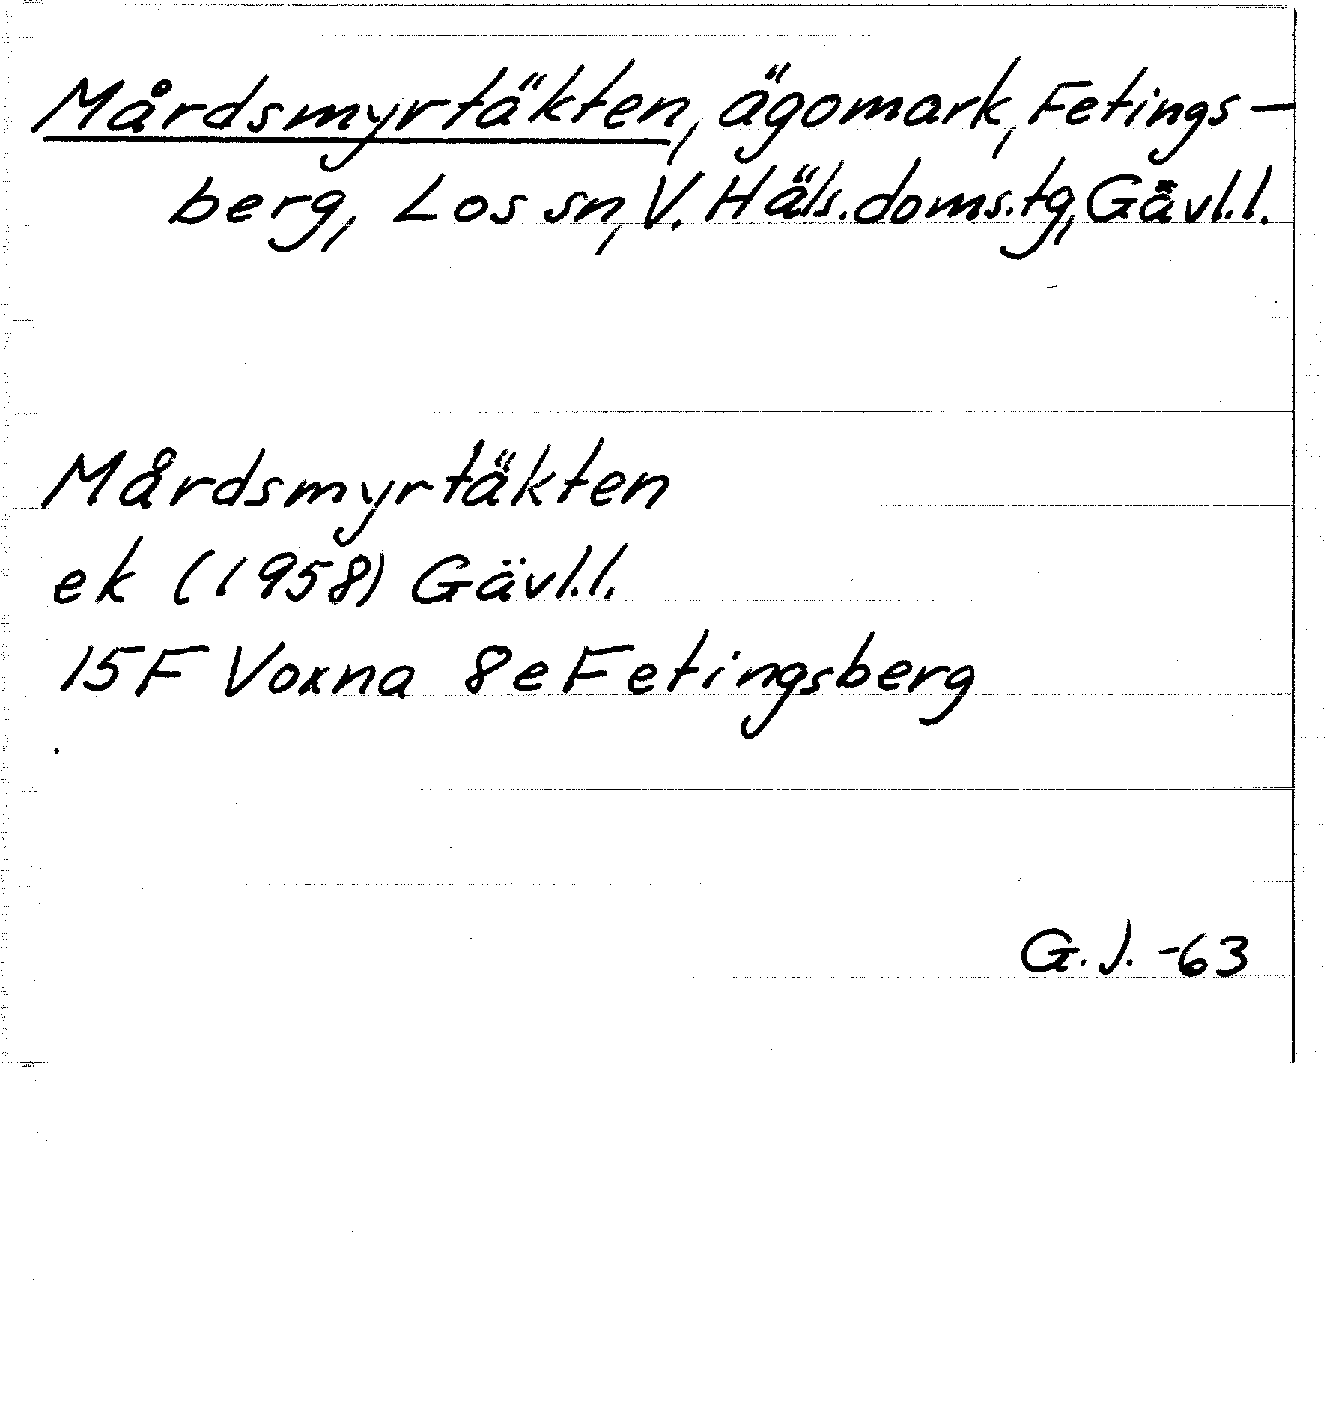 Mårdsmyrtäkten, ägomark, Fetings-
berg, Los sn, V. Häls.doms.tg, Gävl.l.
Mårdsmyrtäkten
ek (1958) Gävl.l.
15F Voxna 8e Fetingsberg
G.J. -63